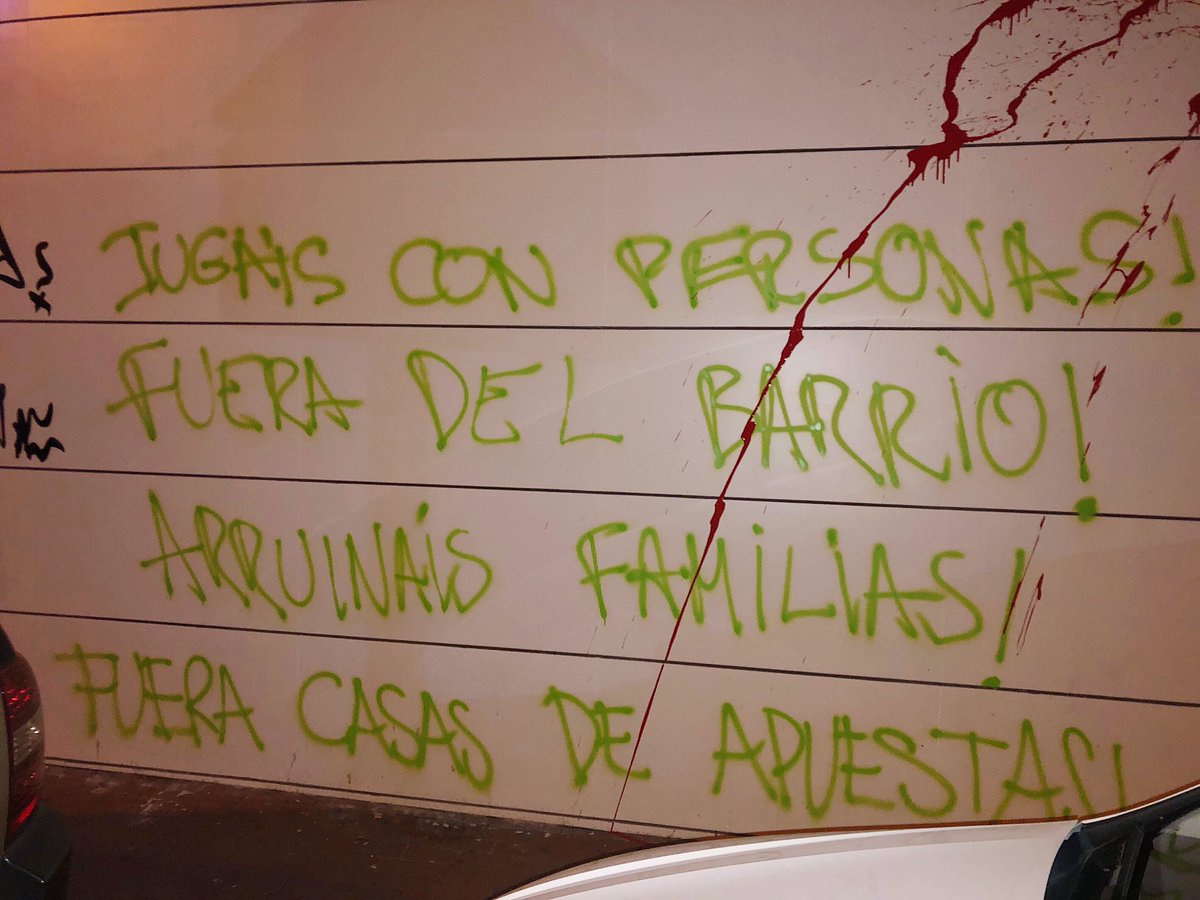 JUGAIS CON PERSONAS!
FUERA DEL BARRIO!
ARRUINAIS FAMILIAS!
FUERA CASAS DE APUESTAS!